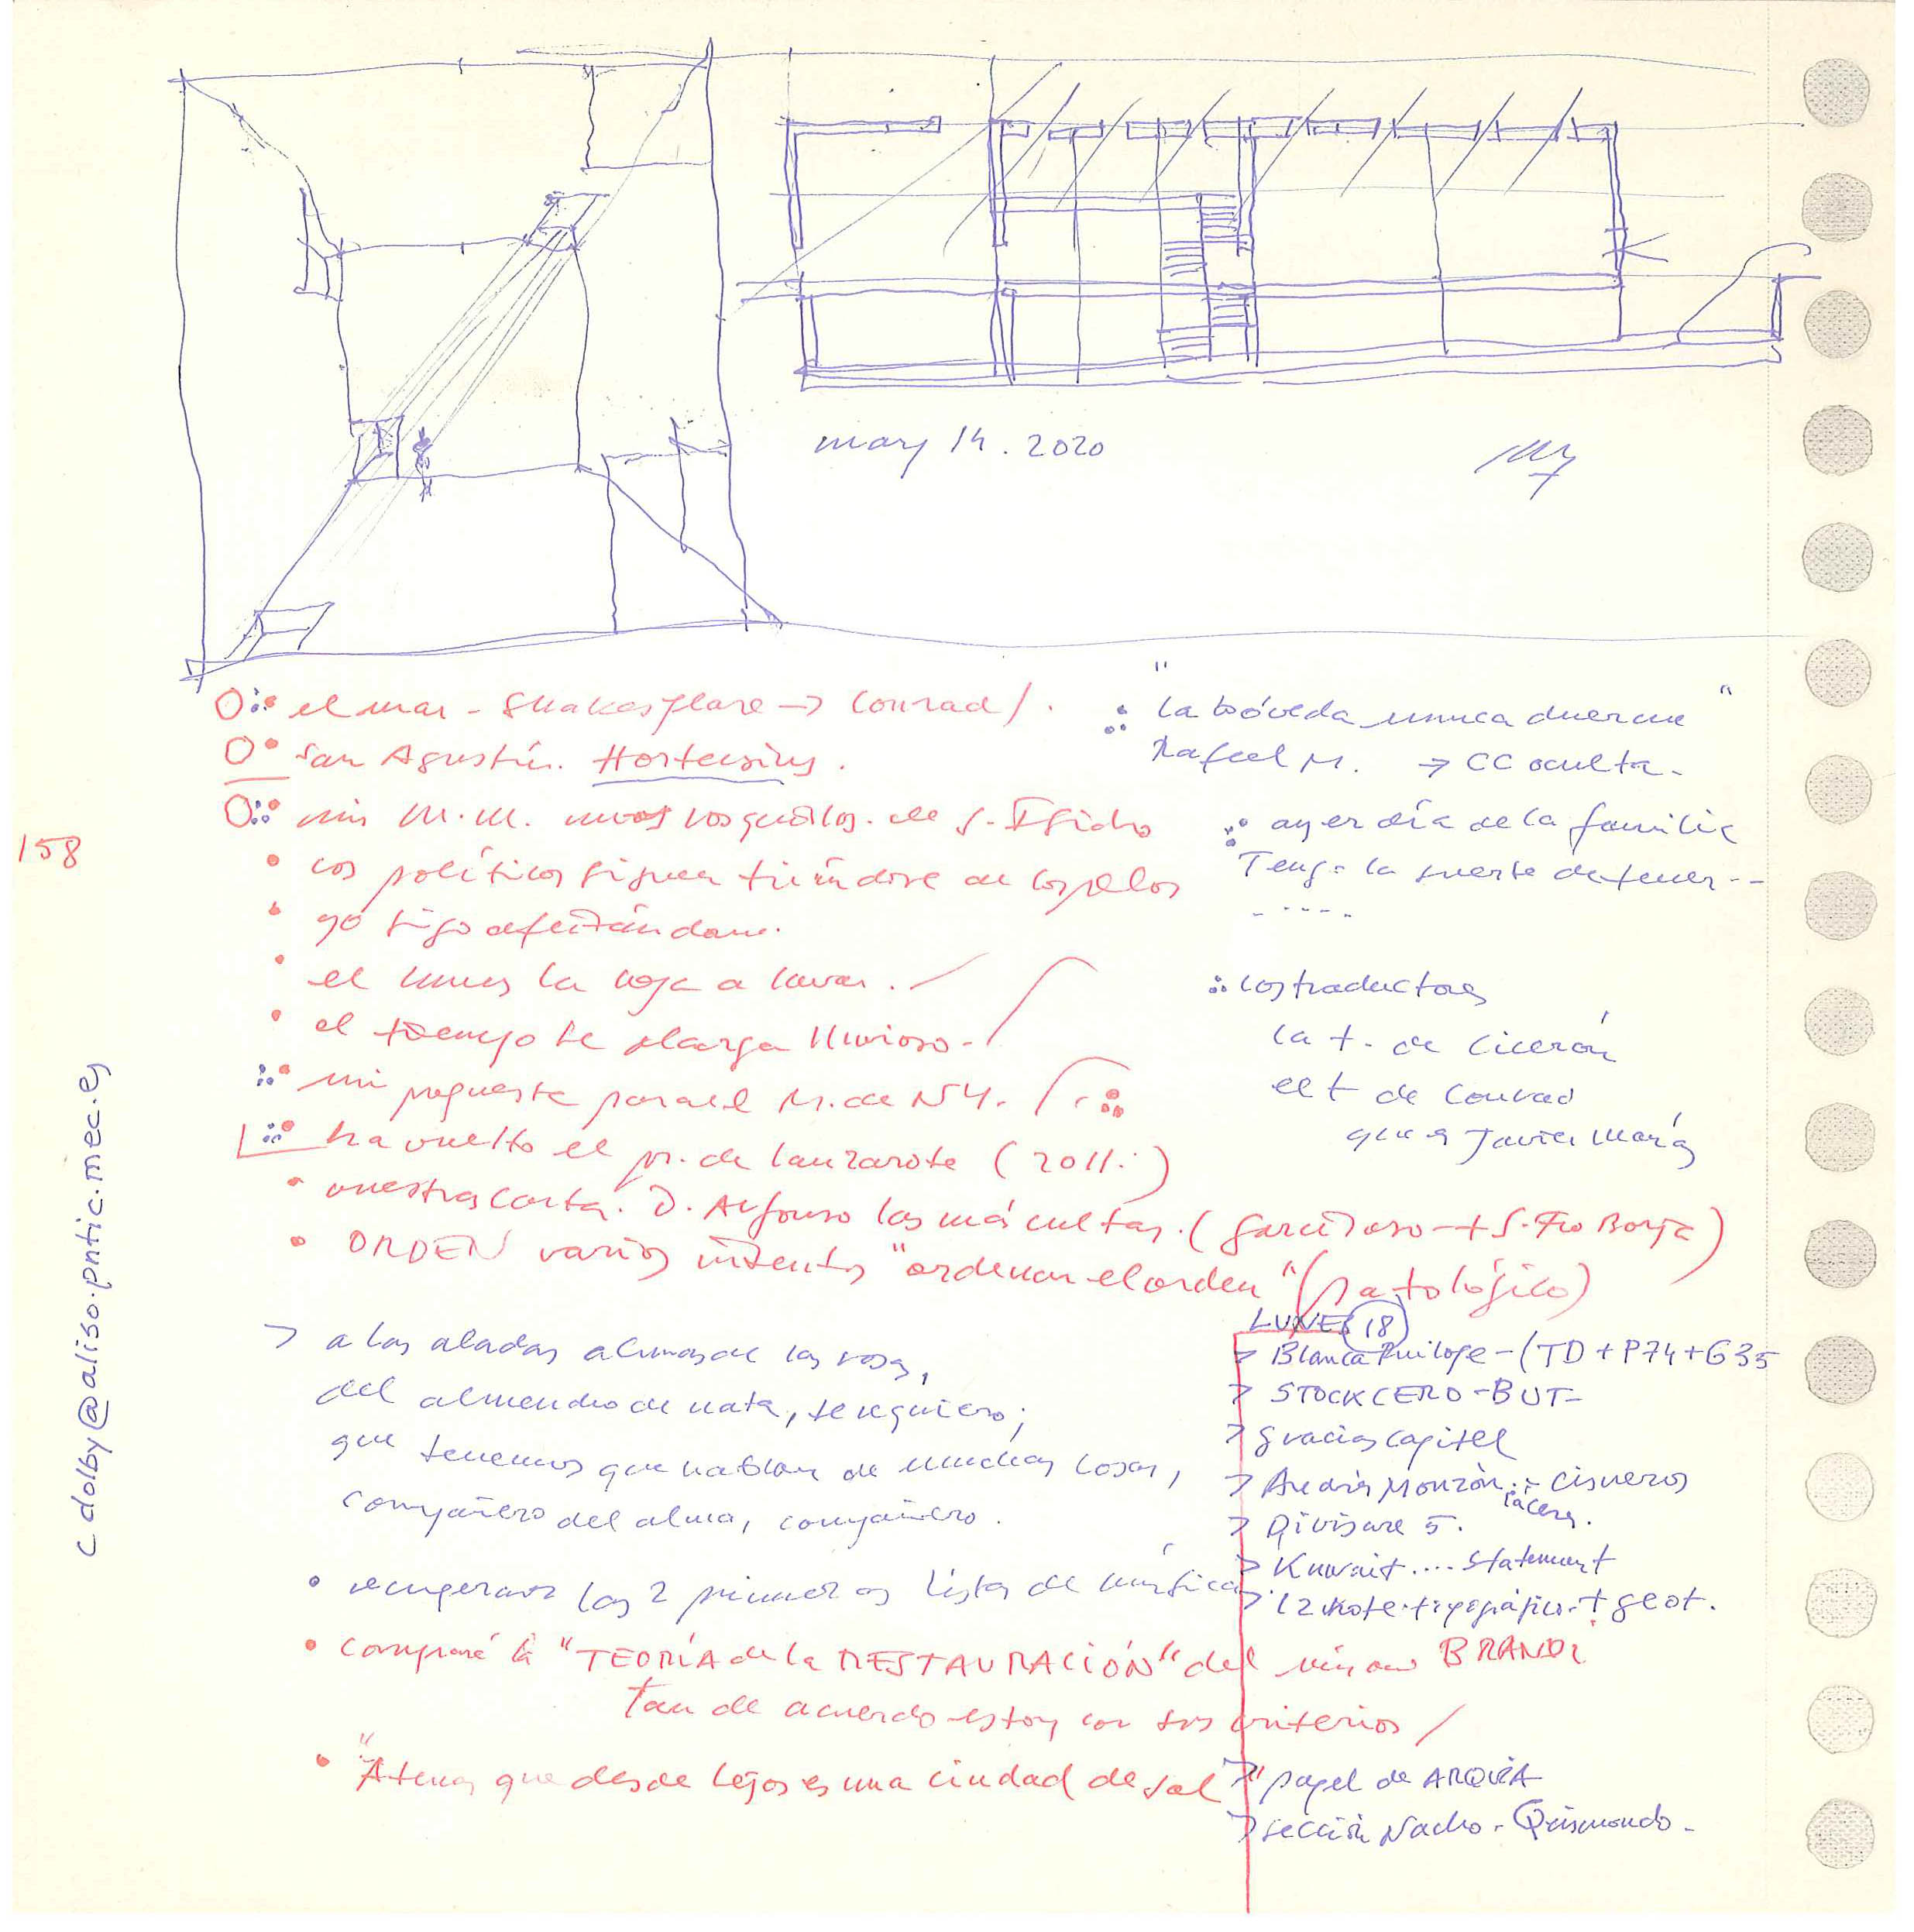 may 14. 2020
el mar - Shakespeare → Conrad / .
San Agustín. Hortensius.
mis M.M. rosquillos. de S. Isidro
los políticos siguen tirándose de los pelos
yo sigo afeitándome.
el lunes la ropa a lavar.
el tiempo se alarga lluvioso.
mi propuesta para el M. de NY.
ha vuelto el p. de Lanzarote (2011.)
nuestra carta. D. Alfonso las más cultas. (Garcilaso + S. Fco Borja)
ORDEN varios intentos "ordenar el orden" (patológico)
"la bóveda nunca duerme"
Rafael M. → CC oculta.
ayer día de la familia
Tengo la suerte de tener --
- - - - -
los traductores
la t. de Cicerón
el t de Conrad
que es Javier Marías
158
cdolby@aliso.pntic.mec.es
> a las aladas almas de las rosas,
del almendro de nata, te requiero;
que tenemos que hablar de muchas cosas,
compañero del alma, compañero.
recuperar las 2 primeras listas de música
compraré la "TEORÍA de la RESTAURACIÓN" del mismo BRANDI
tan de acuerdo estoy con sus criterios /
"Atenas que desde lejos es una ciudad de sal"
LUNES 18
> Blanca - (TD + P74 + G35
> STOCKCERO - BUT-
> gracias Capitel
> Andrés Monzón. Cisneros
> Divisare 5.
> Kuwait .... Statement
> topográfico + geot.
> papel de ARQUIA
> sección Nacho.